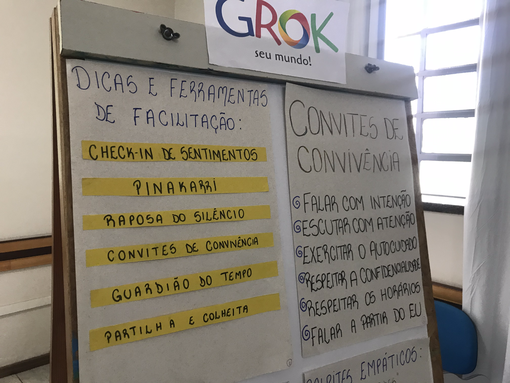 GROK
seu mundo!
DICAS E FERRAMENTAS
DE FACILITAÇÃO:
CHECK-IN DE SENTIMENTOS
PINAKARRI
RAPOSA DO SILÊNCIO
CONVITES DE CONVIVÊNCIA
GUARDIÃO DO TEMPO
PARTILHA E COLHEITA
CONVITES DE
CONVIVÊNCIA
FALAR COM INTENÇÃO
ESCUTAR COM ATENÇÃO
EXERCITAR O AUTOCUIDADO
RESPEITAR A CONFIDENCIALIDADE
RESPEITAR OS HORÁRIOS
FALAR A PARTIR DO EU
EMPÁTICOS: